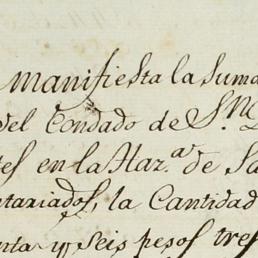 manifiesta la suma
del Condado de S.n
tes en la Haz.a de Sa
ntariados, la Cantidad
nta y seis pesos tres